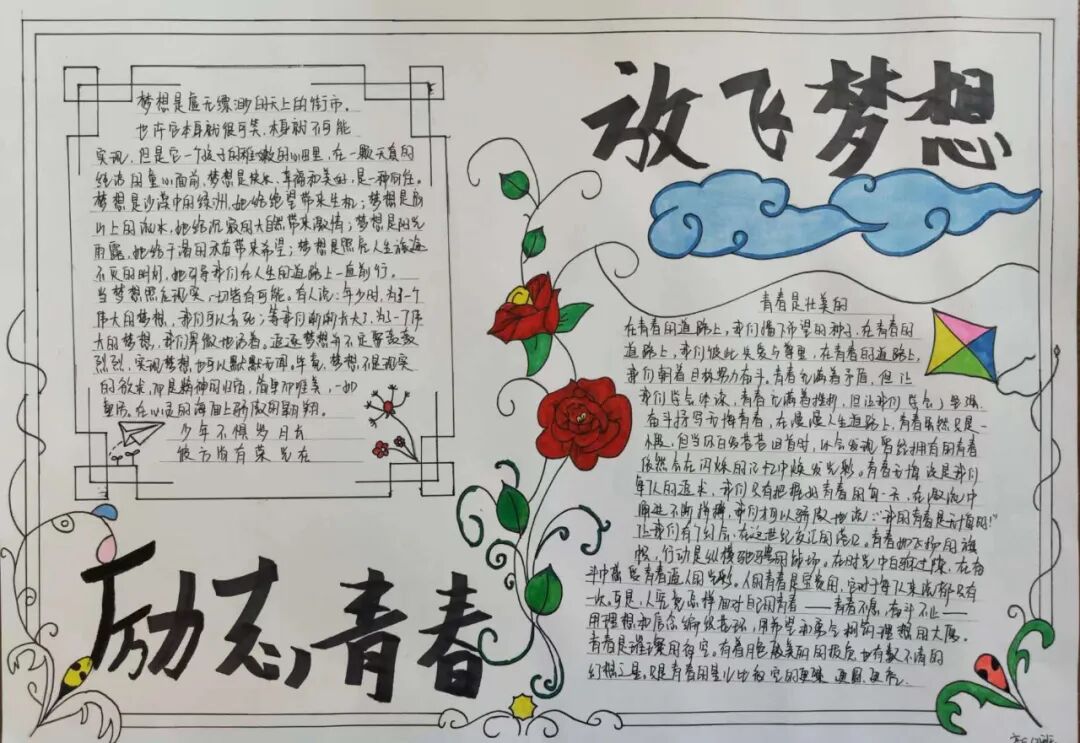 放飞梦想
梦想是虚无缥渺的天上的街市。
也许它本身就很可笑,本身就不可能
实现,但是它一个孩子的稚嫩的心田里,在一颗天真的
纯洁的童心面前,梦想是快乐、幸福和美好,是一种向往。
梦想是沙漠中的绿洲,她给绝望带来生机;梦想是高
山上的流水,她给沉寂的大自然带来激情;梦想是阳光
雨露,她给干渴的禾苗带来希望;梦想是照在人生旅途
不灭的明灯,她引导我们在人生的道路上一直前行。
当梦想照在现实,一切皆有可能。有人说:年少时,为了一个
伟大的梦想,我们可以去死;等我们渐渐长大了,为了一个伟
大的梦想,我们卑微地活着,追逐梦想并不定要轰轰
烈烈,实现梦想也可以默默无闻。毕竟,梦想不是现实
的欲求,而是精神的归宿,简单而唯美,一如
童话,在心灵的海面上骄傲的翱翔。
少年不惧岁月长
彼方尚有荣光在
励志青春
青春是壮美的
在青春的道路上,我们播下希望的种子,在青春的
道路上,我们彼此关爱与尊重,在青春的道路上,
我们朝着目标努力奋斗。青春充满着矛盾,但让
我们学会体谅,青春充满着挫折,但让我们学会了坚强
奋斗抒写无悔青春,在漫漫人生道路上,青春虽然只是一
但当你日后苦苦回首时,你会发现曾经拥有的青春
依然会在闪烁的记忆中焕发光彩。青春无悔该是我们
年轻人的追求,我们只有把握好青春的每一天,在激流中
勇进不断拼搏,我们才可以骄傲地说:“我的青春是无悔的!”
让我们有了纪念,在这世纪交汇的港口。青春如飞扬的旗
帜,行动是纵横驰骋的战场。在时光中自强过隙,在奋
斗中焕发青春逼人的光彩。人的青春是宝贵的,它对于每个人来说都只有
一次。可是,人究竟怎样面对自己的青春——青春不息,奋斗不止——
用理想和信念编织花环,用希望和勇气构筑理想的大厦。
青春是璀璨的夜空,有着月色最美丽的夜色也有数不清的
幻想之星。只是青春的星